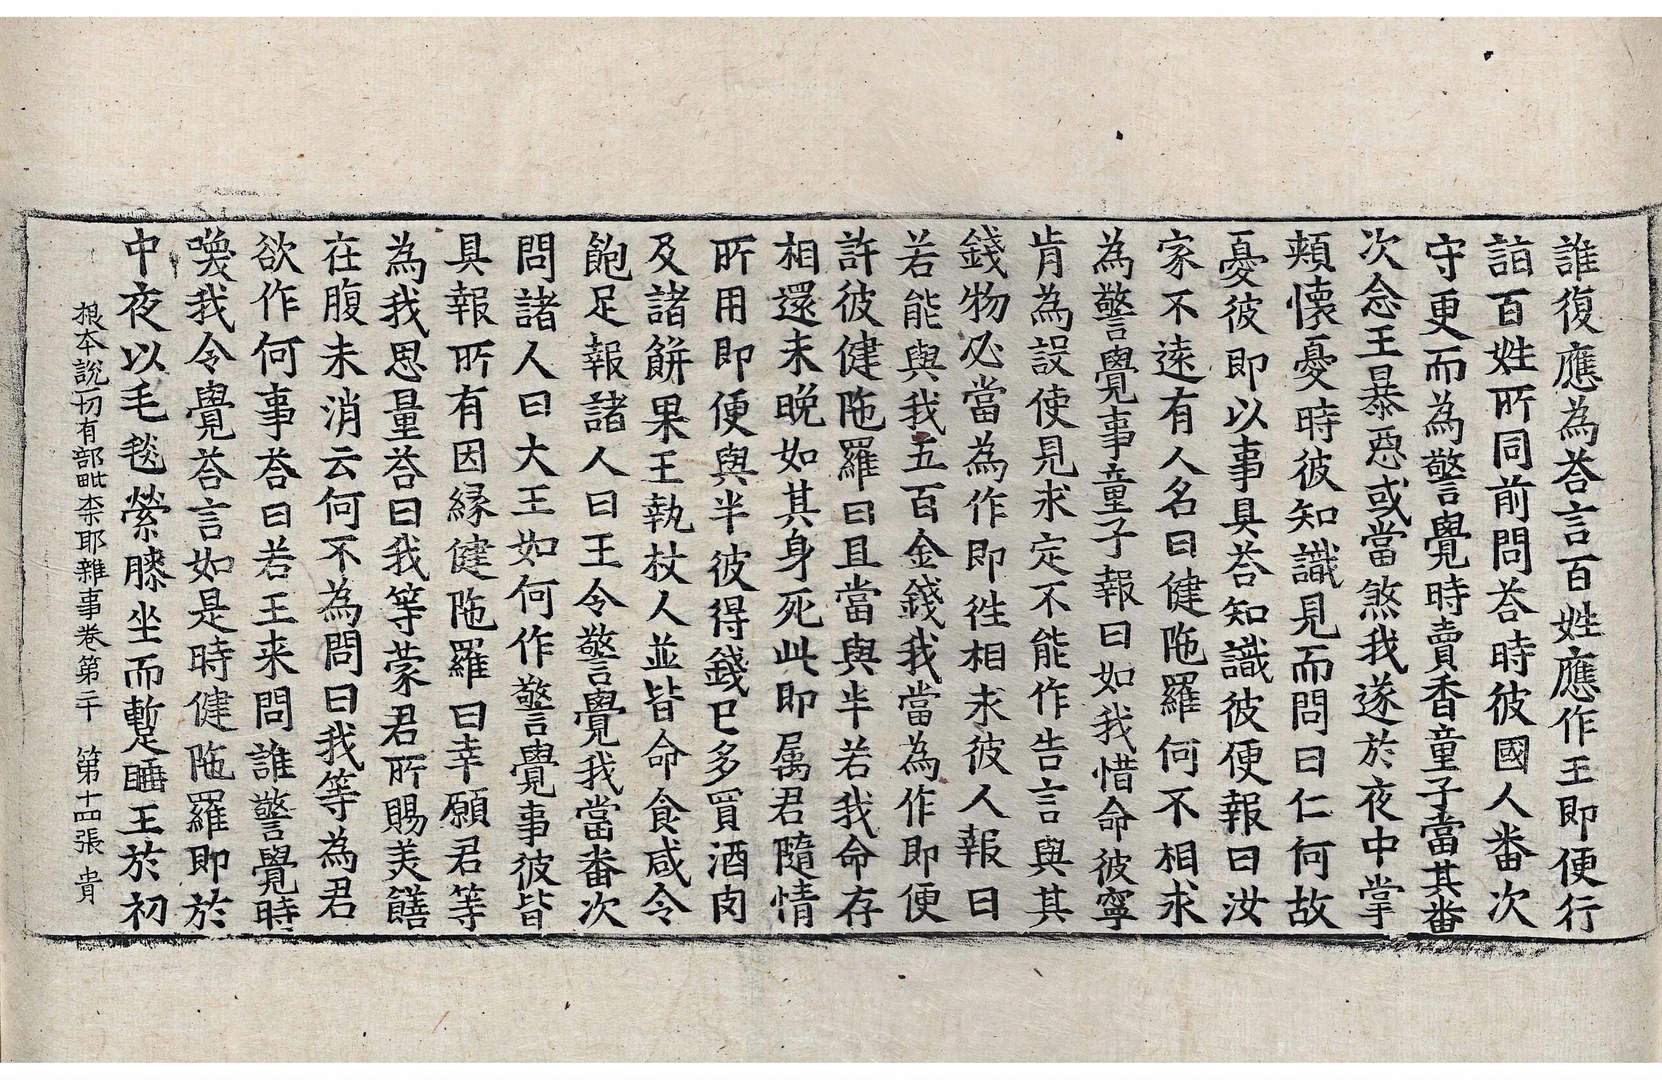 誰復應為荅言百姓應作王即便行
詣百姓所同前問荅時彼國人番次
守更而為警覺時賣香童子當其番
次念王暴惡或當煞我遂於夜中掌
頰懷憂時彼知識見而問曰仁何故
憂彼即以事具荅知識彼便報曰汝
家不遠有人名曰健陁羅何不相求
為警覺事童子報曰如我惜命彼寧
肯為設使見求定不能作告言與其
錢物必當為作即徃相求彼人報曰
若能與我五百金錢我當為作即便
許彼健陁羅曰且當與半若我命存
相還未晚如其身死此即属君隨情
所用即便與半彼得錢已多買酒肉
及諸餅果王執杖人並皆命食咸令
飽足報諸人曰王令警覺我當番次
問諸人曰大王如何作警覺事彼皆
具報所有因縁健陁羅曰幸願君等
為我思量荅曰我等蒙君所賜美饍
在腹未消云何不為問曰我等為君
欲作何事荅曰若王来問誰警覺時
喚我令覺荅言如是時健陁羅即於
中夜以毛毯縈膝坐而暫睡王於初
根本說一切有部毗柰耶雜事卷第二十　第十四張　貴